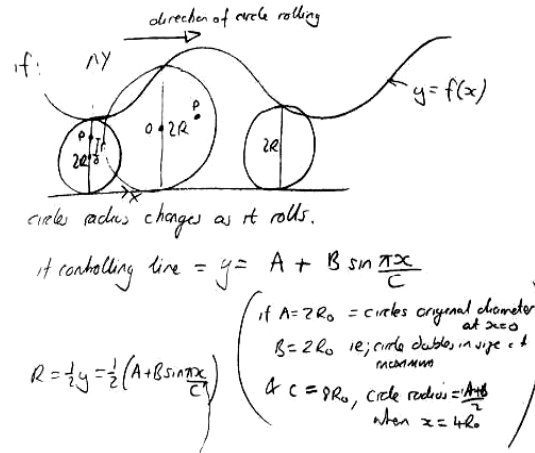 direction of circle rolling
if:
Y
y = f(x)
P
2R
r
O
2R
P
2R
X
circles radius changes as it rolls.
if controlling line = y = A + B sin πx/C
if A = 2R₀ = circles original diameter
at x=0
B = 2R₀ ie; circle doubles in size at
maximum
& C = 8R₀, circle radius = A+B/2
when x = 4R₀
R = ½y = ½(A + B sin πx/C)